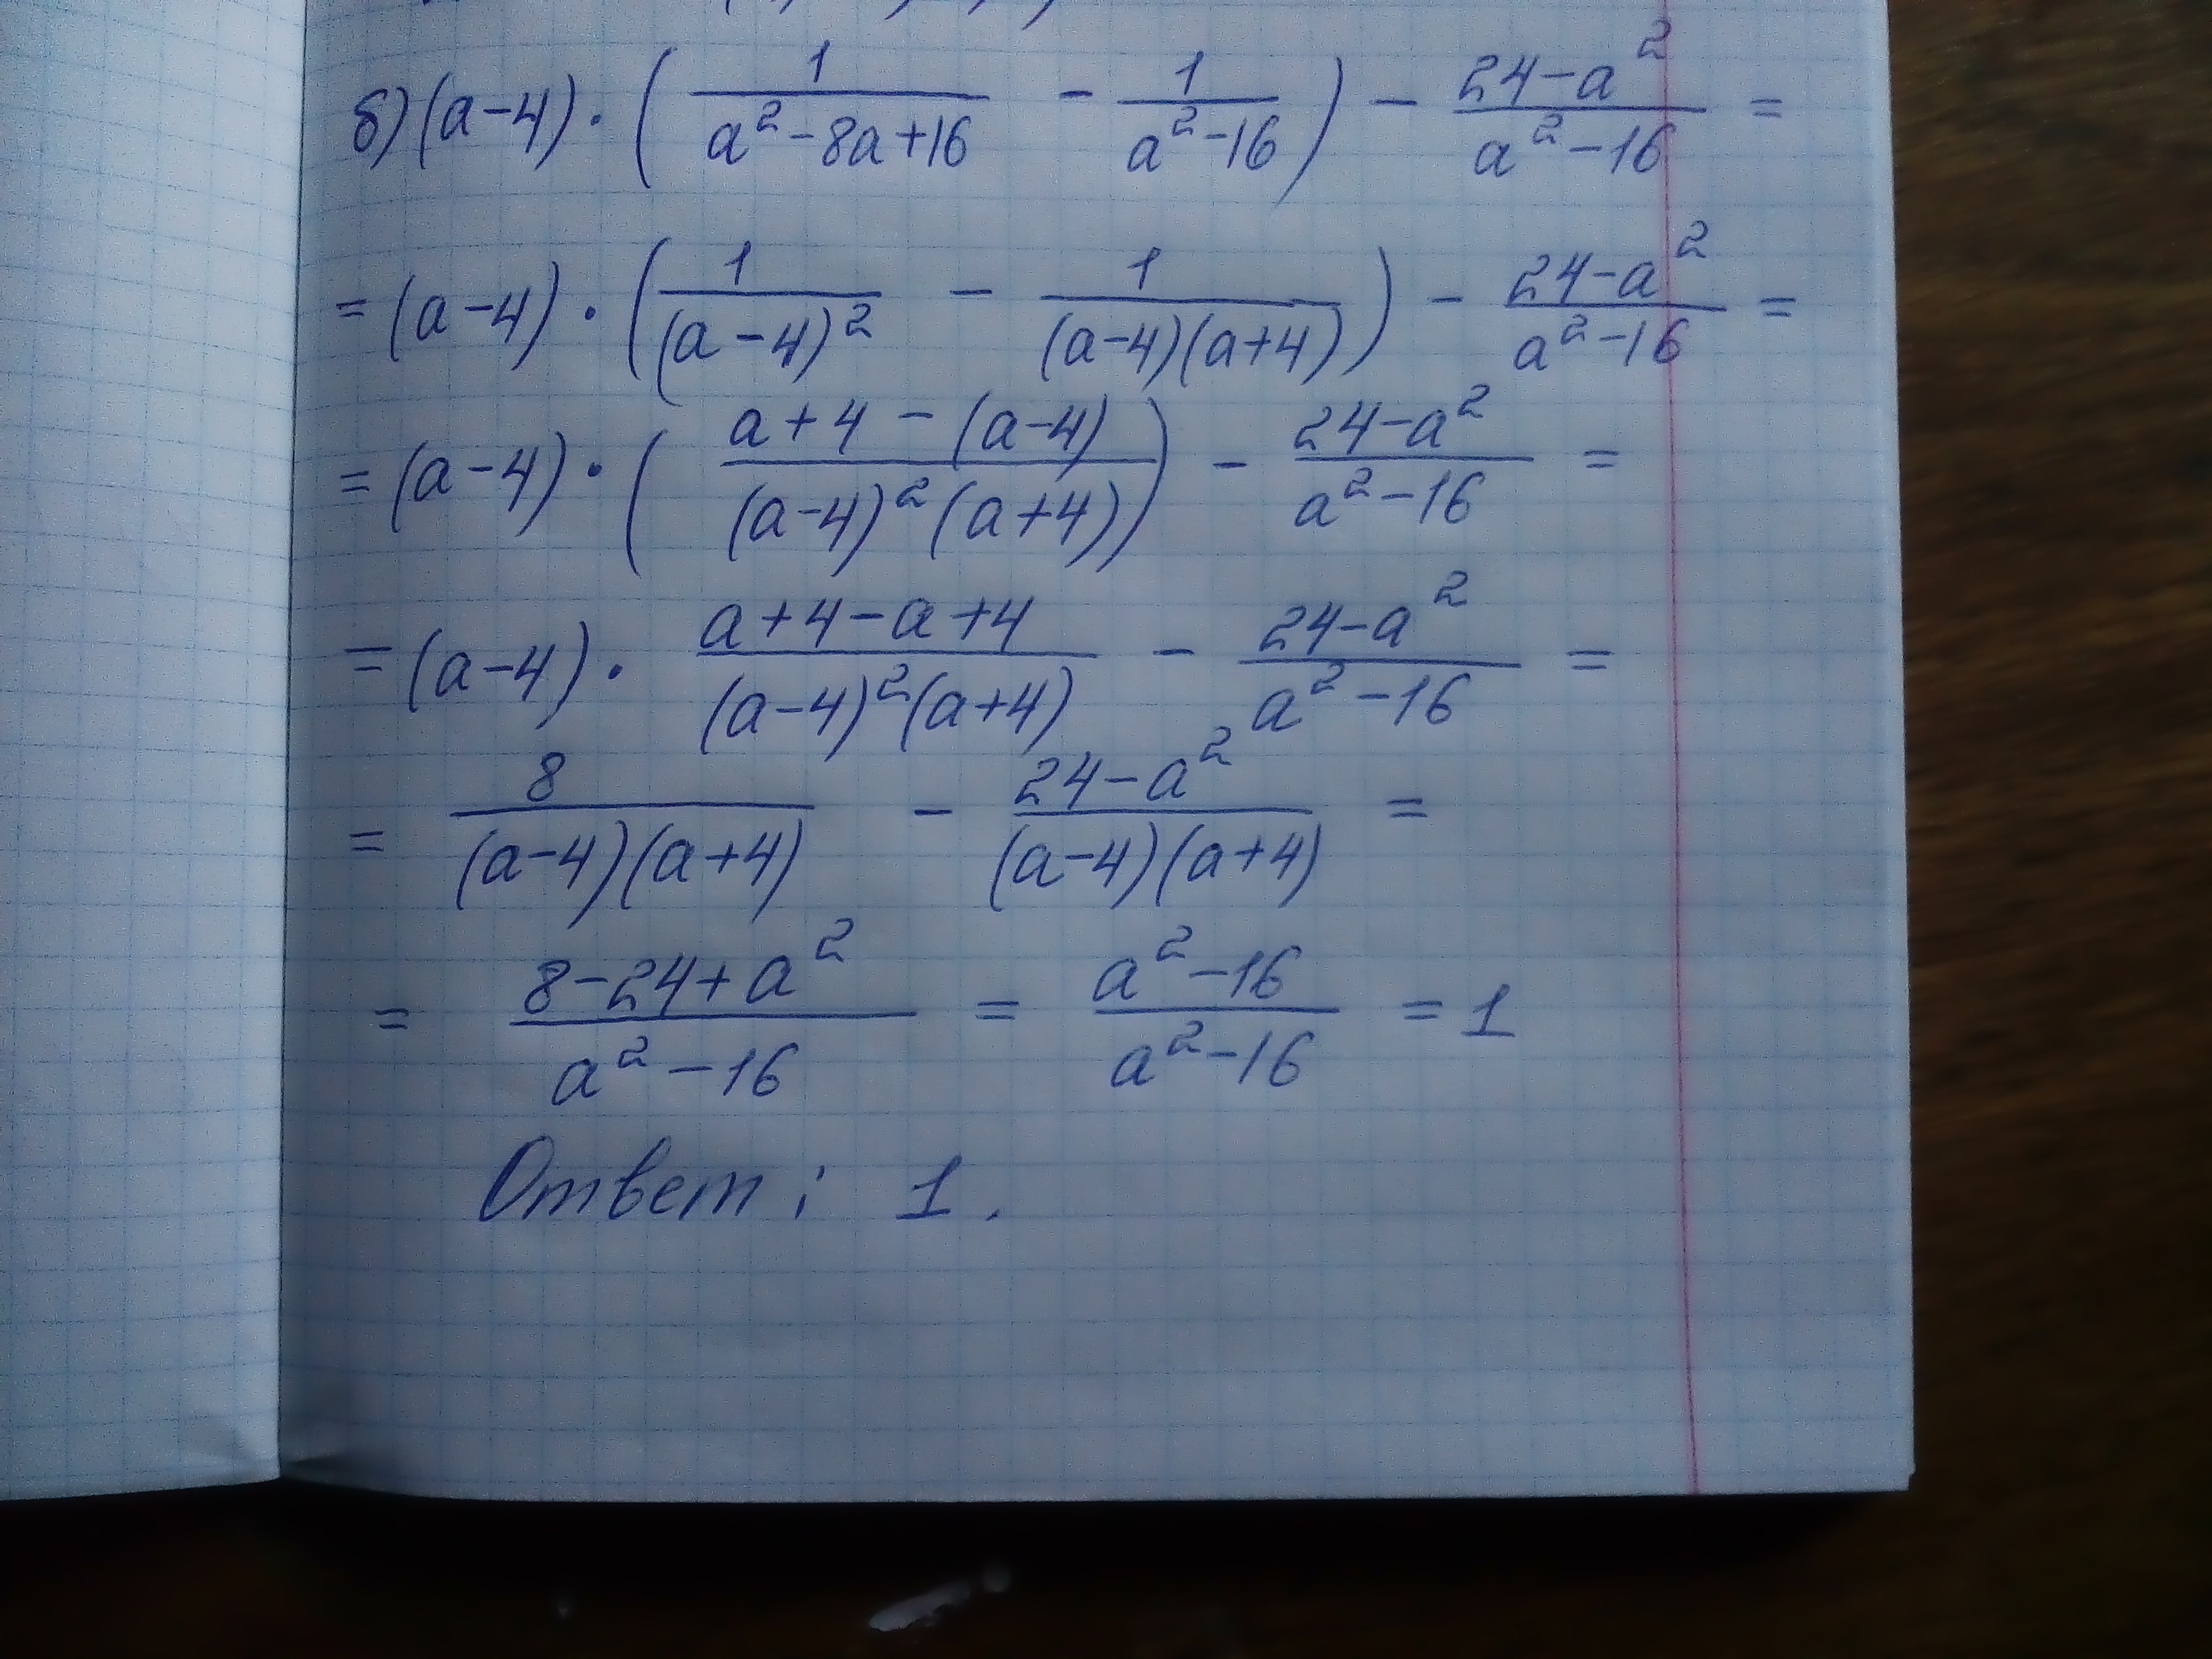 б) (a-4)·(1/(a²-8a+16) - 1/(a²-16)) - (24-a²)/(a²-16) =
= (a-4)·(1/(a-4)² - 1/((a-4)(a+4))) - (24-a²)/(a²-16) =
= (a-4)·((a+4-(a-4))/((a-4)²(a+4))) - (24-a²)/(a²-16) =
= (a-4)·(a+4-a+4)/((a-4)²(a+4)) - (24-a²)/(a²-16) =
= 8/((a-4)(a+4)) - (24-a²)/((a-4)(a+4)) =
= (8-24+a²)/(a²-16) = (a²-16)/(a²-16) = 1
Ответ: 1.